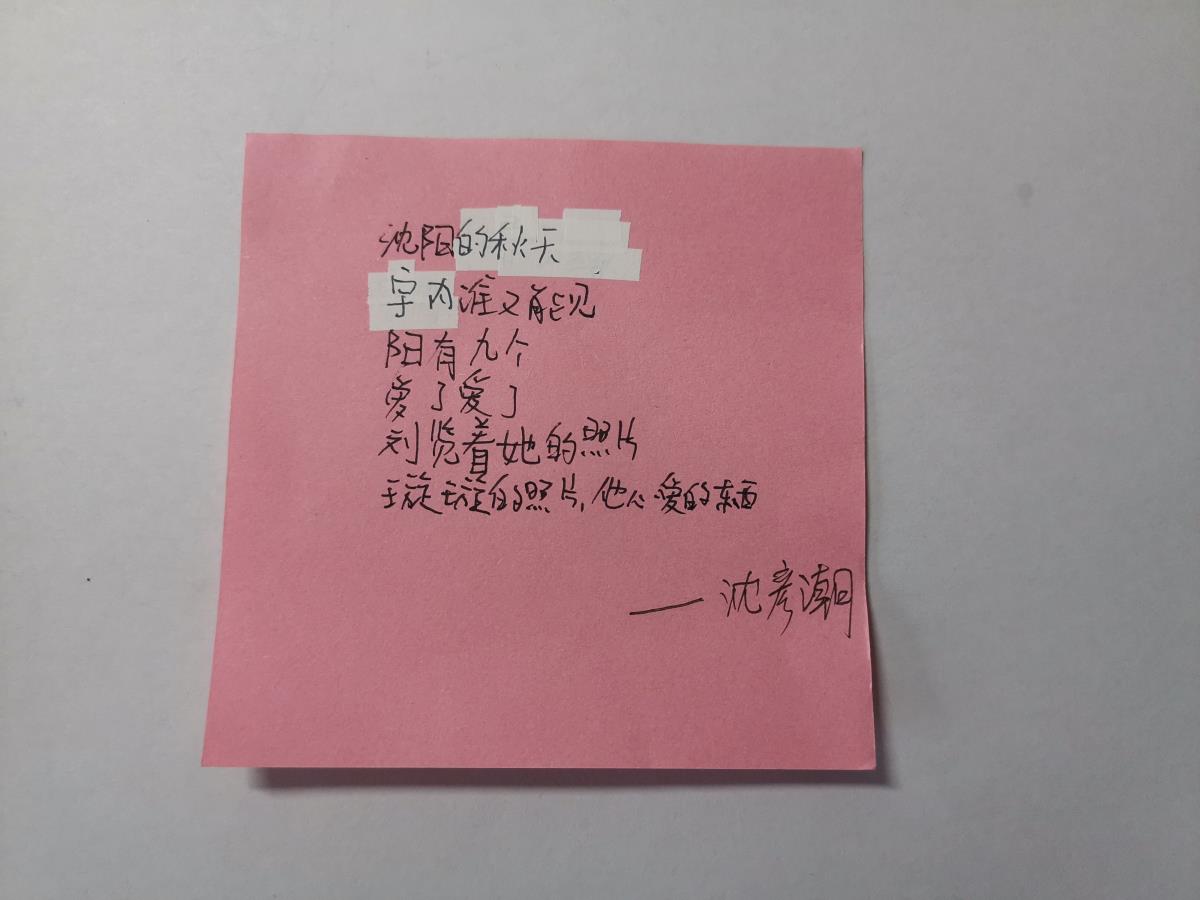 沈阳的秋天
宇内谁又能见
阳有九个
爱了爱了
刘览着她的照片
璇璇的照片,他心爱的东西
——沈彦潮